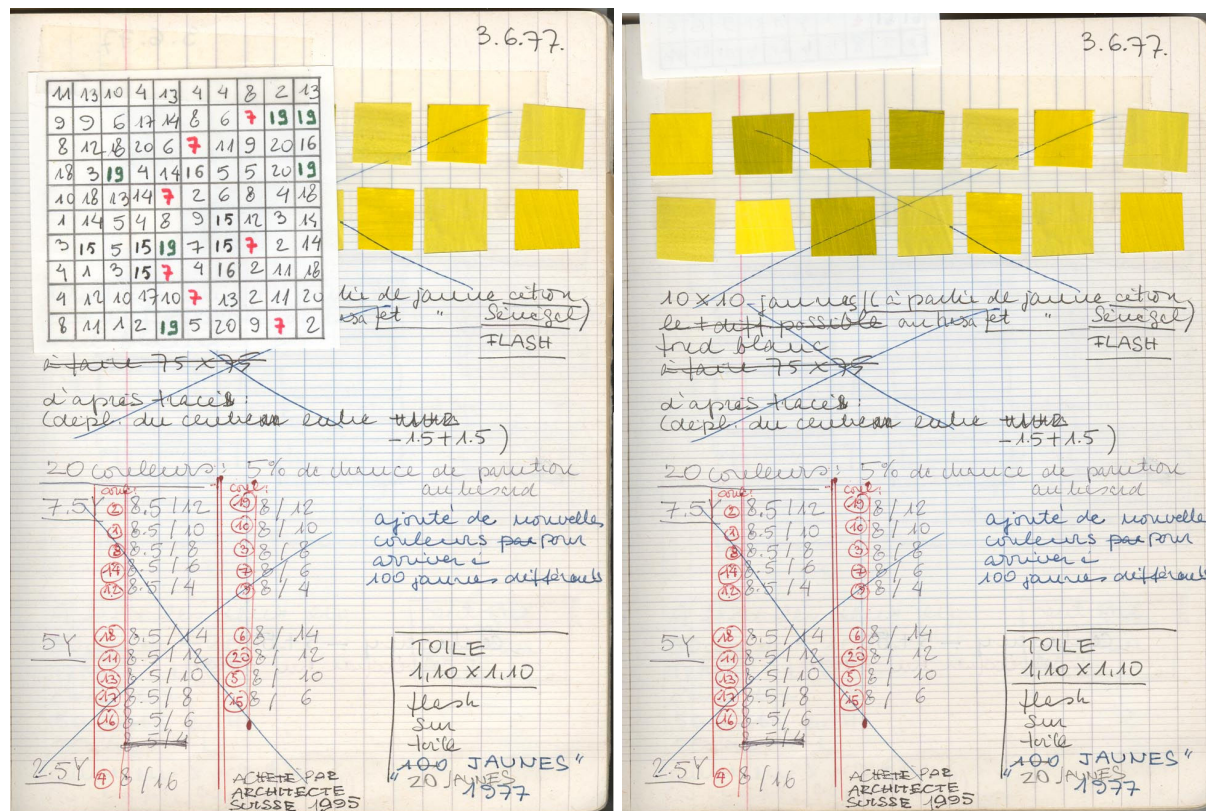 3.6.77.
11 13 10 4 13 4 4 8 2 13
9 9 6 17 14 8 6 7 19 19
8 12 18 20 6 7 11 9 20 16
18 3 19 4 14 16 5 5 20 19
10 18 13 14 7 2 6 8 4 18
1 14 5 4 8 9 15 12 3 14
3 15 5 15 19 7 15 7 2 14
4 1 3 15 7 4 16 2 11 18
4 12 10 17 10 7 13 2 11 20
8 11 1 2 19 5 20 9 7 2
de jaune citron
et " Sénégal)
FLASH
à faire 75 x 75
d'après tracés :
(dépl. du centre entre
-1.5 + 1.5)
20 couleurs : 5% de chance de parution
au hasard
7.5Y
coul. coul.
2 8.5 / 12 19 8 / 12
1 8.5 / 10 10 8 / 10
8 8.5 / 8 3 8 / 8
14 8.5 / 6 7 8 / 6
12 8.5 / 4 9 8 / 4
ajouté de nouvelles
couleurs pour
arriver à
100 jaunes différents
5Y
18 8.5 / 14 6 8 / 14
11 8.5 / 12 20 8 / 12
13 8.5 / 10 5 8 / 10
17 8.5 / 8 15 8 / 6
16 8.5 / 6
8.5/4
2.5Y 4 8 / 16
TOILE
1,10 x 1,10
flash
sur
toile
"100 JAUNES"
"20 JAUNES
1977
ACHETE PAR
ARCHITECTE
SUISSE 1995
3.6.77.
10 x 10 jaunes (à partir de jaune citron
le + diff possible au hasard et " Sénégal)
fond blanc
FLASH
à faire 75 x 75
d'après tracés :
(dépl. du centre entre
-1.5 + 1.5)
20 couleurs : 5% de chance de parution
au hasard
7.5Y
coul. coul.
2 8.5 / 12 19 8 / 12
1 8.5 / 10 10 8 / 10
8 8.5 / 8 3 8 / 8
14 8.5 / 6 7 8 / 6
12 8.5 / 4 9 8 / 4
ajouté de nouvelles
couleurs pour
arriver à
100 jaunes différents
5Y
18 8.5 / 14 6 8 / 14
11 8.5 / 12 20 8 / 12
13 8.5 / 10 5 8 / 10
17 8.5 / 8 15 8 / 6
16 8.5 / 6
8.5/4
2.5Y 4 8 / 16
TOILE
1,10 x 1,10
flesh
sur
toile
"100 JAUNES"
"20 JAUNES
1977
ACHETE PAR
ARCHITECTE
SUISSE 1995